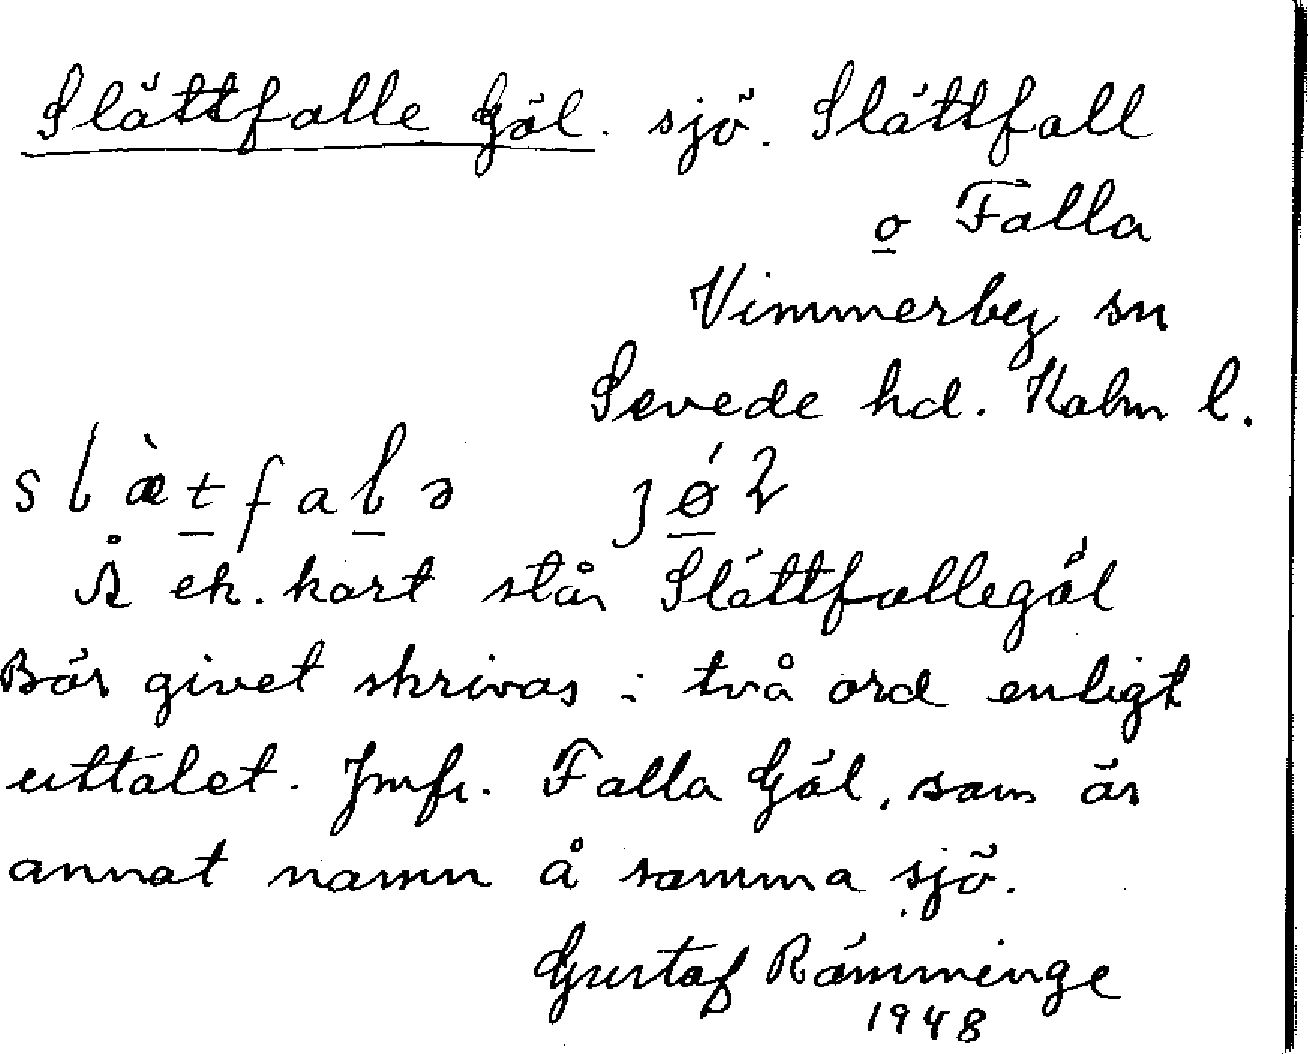 Slättfalle Göl. sjö. Slättfall
o Falla
Vimmerby sn
Sevede hd. Kalm l.
slæ̀tfalə jǿl
Å ek. kart står Slättfallegöl
Bör givet skrivas i två ord enligt
uttalet. Jmfr. Falla Göl, som är
annat namn å samma sjö.
Gustaf Rämminge
1948